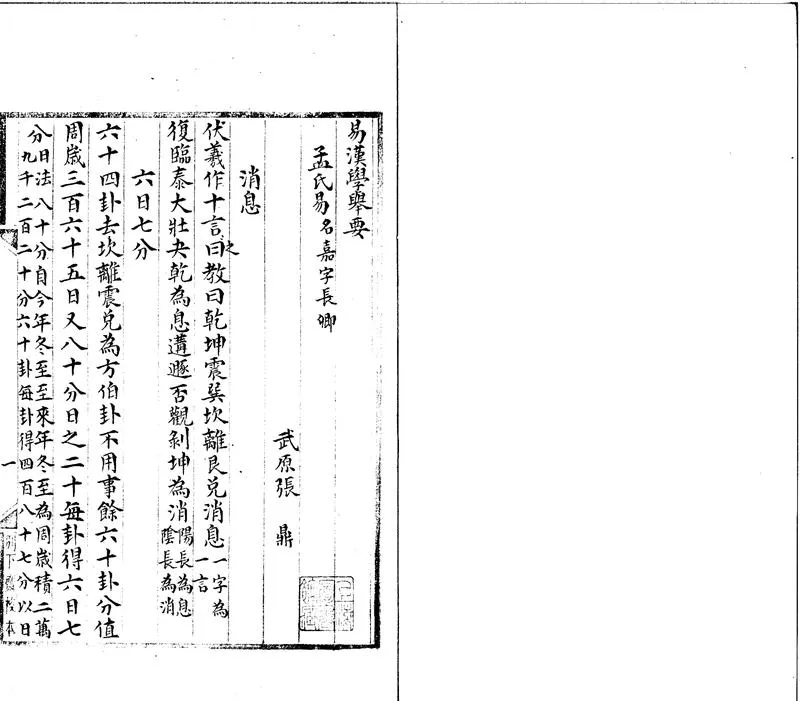 易漢學舉要
孟氏易名嘉字長卿
武原張鼎
消息
伏羲作十言之曰教曰乾坤震巽坎離艮兌消息一字為一言
復臨泰大壯夬乾為息遘遯否觀剝坤為消陽長為息陰長為消
六日七分
六十四卦去坎離震兌為方伯卦不用事餘六十卦分值
周歲三百六十五日又八十分日之二十每卦得六日七
分日法八十分自今年冬至至來年冬至為周歲積二萬
九千二百二十分六十卦每卦得四百八十七分以日
一
別下齋校本